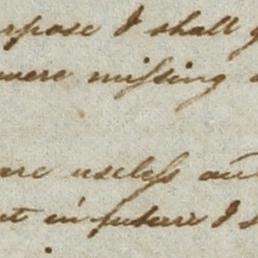 rpose I shall g
were missing
are useless an
t in future I s